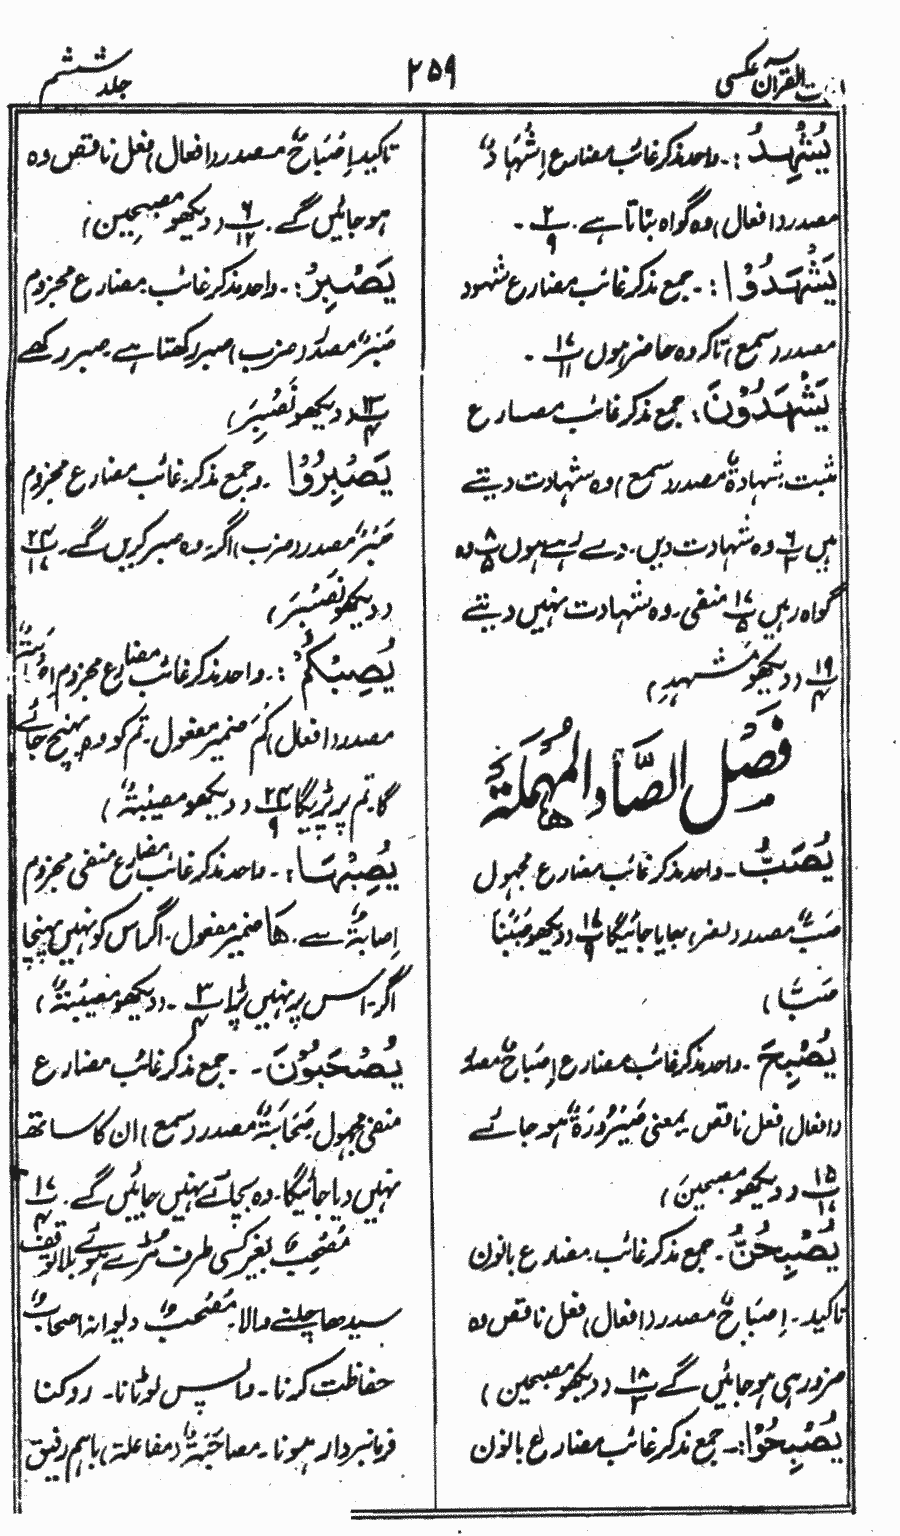 لغات القرآن عکسی ۲۵۹ جلد ششم
یُشْہِدُ:۔ واحد مذکر غائب مضارع اِشْہَادٌ
مصدر (افعال) وہ گواہ بناتا ہے۔ ۲/۹ ۔
یَشْہَدُوْا:۔ جمع مذکر غائب مضارع شہود
مصدر (سمع) تاکہ وہ حاضر ہوں ۱۷/۱۱ ۔
یَشْہَدُوْنَ: جمع مذکر غائب مضارع
مثبت شہادۃٌ مصدر (سمع) وہ شہادت دیتے
ہیں ۶/۳ وہ شہادت دیں۔ دے رہے ہوں ۸/۵ وہ
گواہ رہیں ۱۷/۵ منفی۔ وہ شہادت نہیں دیتے
۱۹/۴ (دیکھو مَشْہَدِ)
فَصْلُ الصَّادِ الْمُہْمَلَۃِ
یُصَبُّ۔ واحد مذکر غائب مضارع مجہول
صَبٌّ مصدر (نصر) بہایا جائیگا ۱۷/۹ (دیکھو صَبَبْنَا
صَبًّا)
یُصْبِحَ۔ واحد مذکر غائب مضارع اِصْبَاحٌ مصدر
(افعال) فعل ناقص بمعنی صَیْرُوْرَۃٌ ہو جائے
۱۵/۱۷ (دیکھو مصبحین)
یُصْبِحُنَّ۔ جمع مذکر غائب۔ مضارع بانون
تاکید۔ اِصْبَاحٌ مصدر (افعال) فعل ناقص وہ
ضرور ہی ہو جائیں گے ۱۸/۳ (دیکھو مصبحین)
یُصْبِحُوْا:۔ جمع مذکر غائب مضارع بانون
تاکید اِصْبَاحٌ مصدر (افعال) فعل ناقص وہ
ہو جائیں گے۔ ۶/۱۲ (دیکھو مصبحین)
یَصْبِرْ:۔ واحد مذکر غائب۔ مضارع مجزوم
صَبْرٌ مصدر (ضرب) صبر رکھتا ہے۔ صبر رکھے
۱۳/۴ (دیکھو نَصْبِرَ)
یَصْبِرُوْا۔ جمع مذکر غائب مضارع مجزوم
صَبْرٌ مصدر (ضرب) اگر وہ صبر کریں گے۔ ۲۴/۱۷
(دیکھو نَصْبِرَ)
یُصِبْکُمْ:۔ واحد مذکر غائب مضارع مجزوم اِصَابَۃٌ
مصدر (افعال) کُمْ ضمیر مفعول۔ تم کو وہ پہنچ جائے
گا۔ تم پر پڑیگا ۲۴/۹ (دیکھو مصیبۃٌ)
یُصِبْہَا:۔ واحد مذکر غائب مضارع منفی مجزوم
اِصابۃٌ سے۔ ھَا ضمیر مفعول۔ اگر اس کو نہیں پہنچا
اگر۔ اس پر نہیں پڑا ۳/۴ ۔ (دیکھو مصیبۃٌ)
یُصْحَبُوْنَ۔ ۔ جمع مذکر غائب مضارع
منفی مجہول صَحَابَۃٌ مصدر (سمع) ان کا ساتھ
نہیں دیا جائیگا۔ وہ بچائے نہیں جائیں گے۔ ۱۷/۴
مُصْحِبٌ بغیر کسی طرف مڑے ہوئے بلا توقف
سیدھا چلنے والا۔ مُصْحَبٌ دیوانہ اصحابٌ
حفاظت کرنا۔ واپس لوٹانا۔ روکنا
فرمانبردار ہونا۔ مصاحَبَۃٌ (مفاعلۃ) باہم رفیق